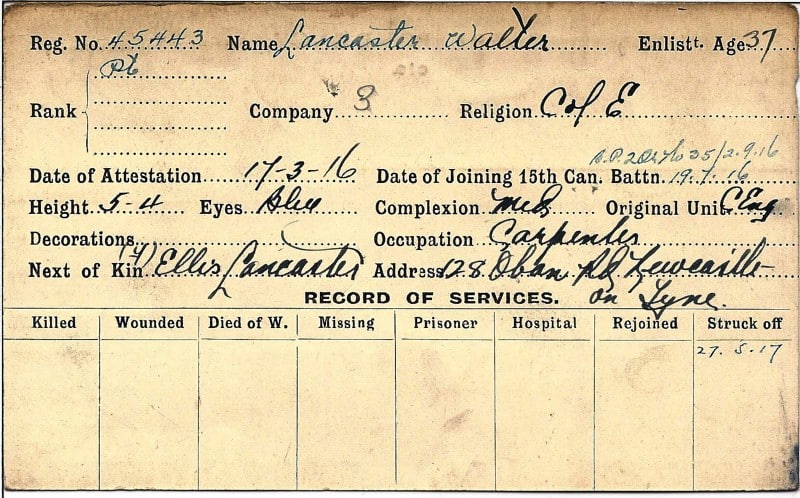 Reg. No. 45443 Name Lancaster Walter Enlistt. Age 37
Pt
Rank Company 3 Religion C of E
35/2.9.16
Date of Attestation 17-3-16 Date of Joining 15th Can. Battn. 19.7.16
Height 5-4 Eyes Blue Complexion Med Original Unit C Eng
Decorations Occupation Carpenter
Next of Kin (f) Ellis Lancaster Address 128 Oban Rd Newcastle
on Tyne.
RECORD OF SERVICES.
Killed Wounded Died of W. Missing Prisoner Hospital Rejoined Struck off
27.5.17